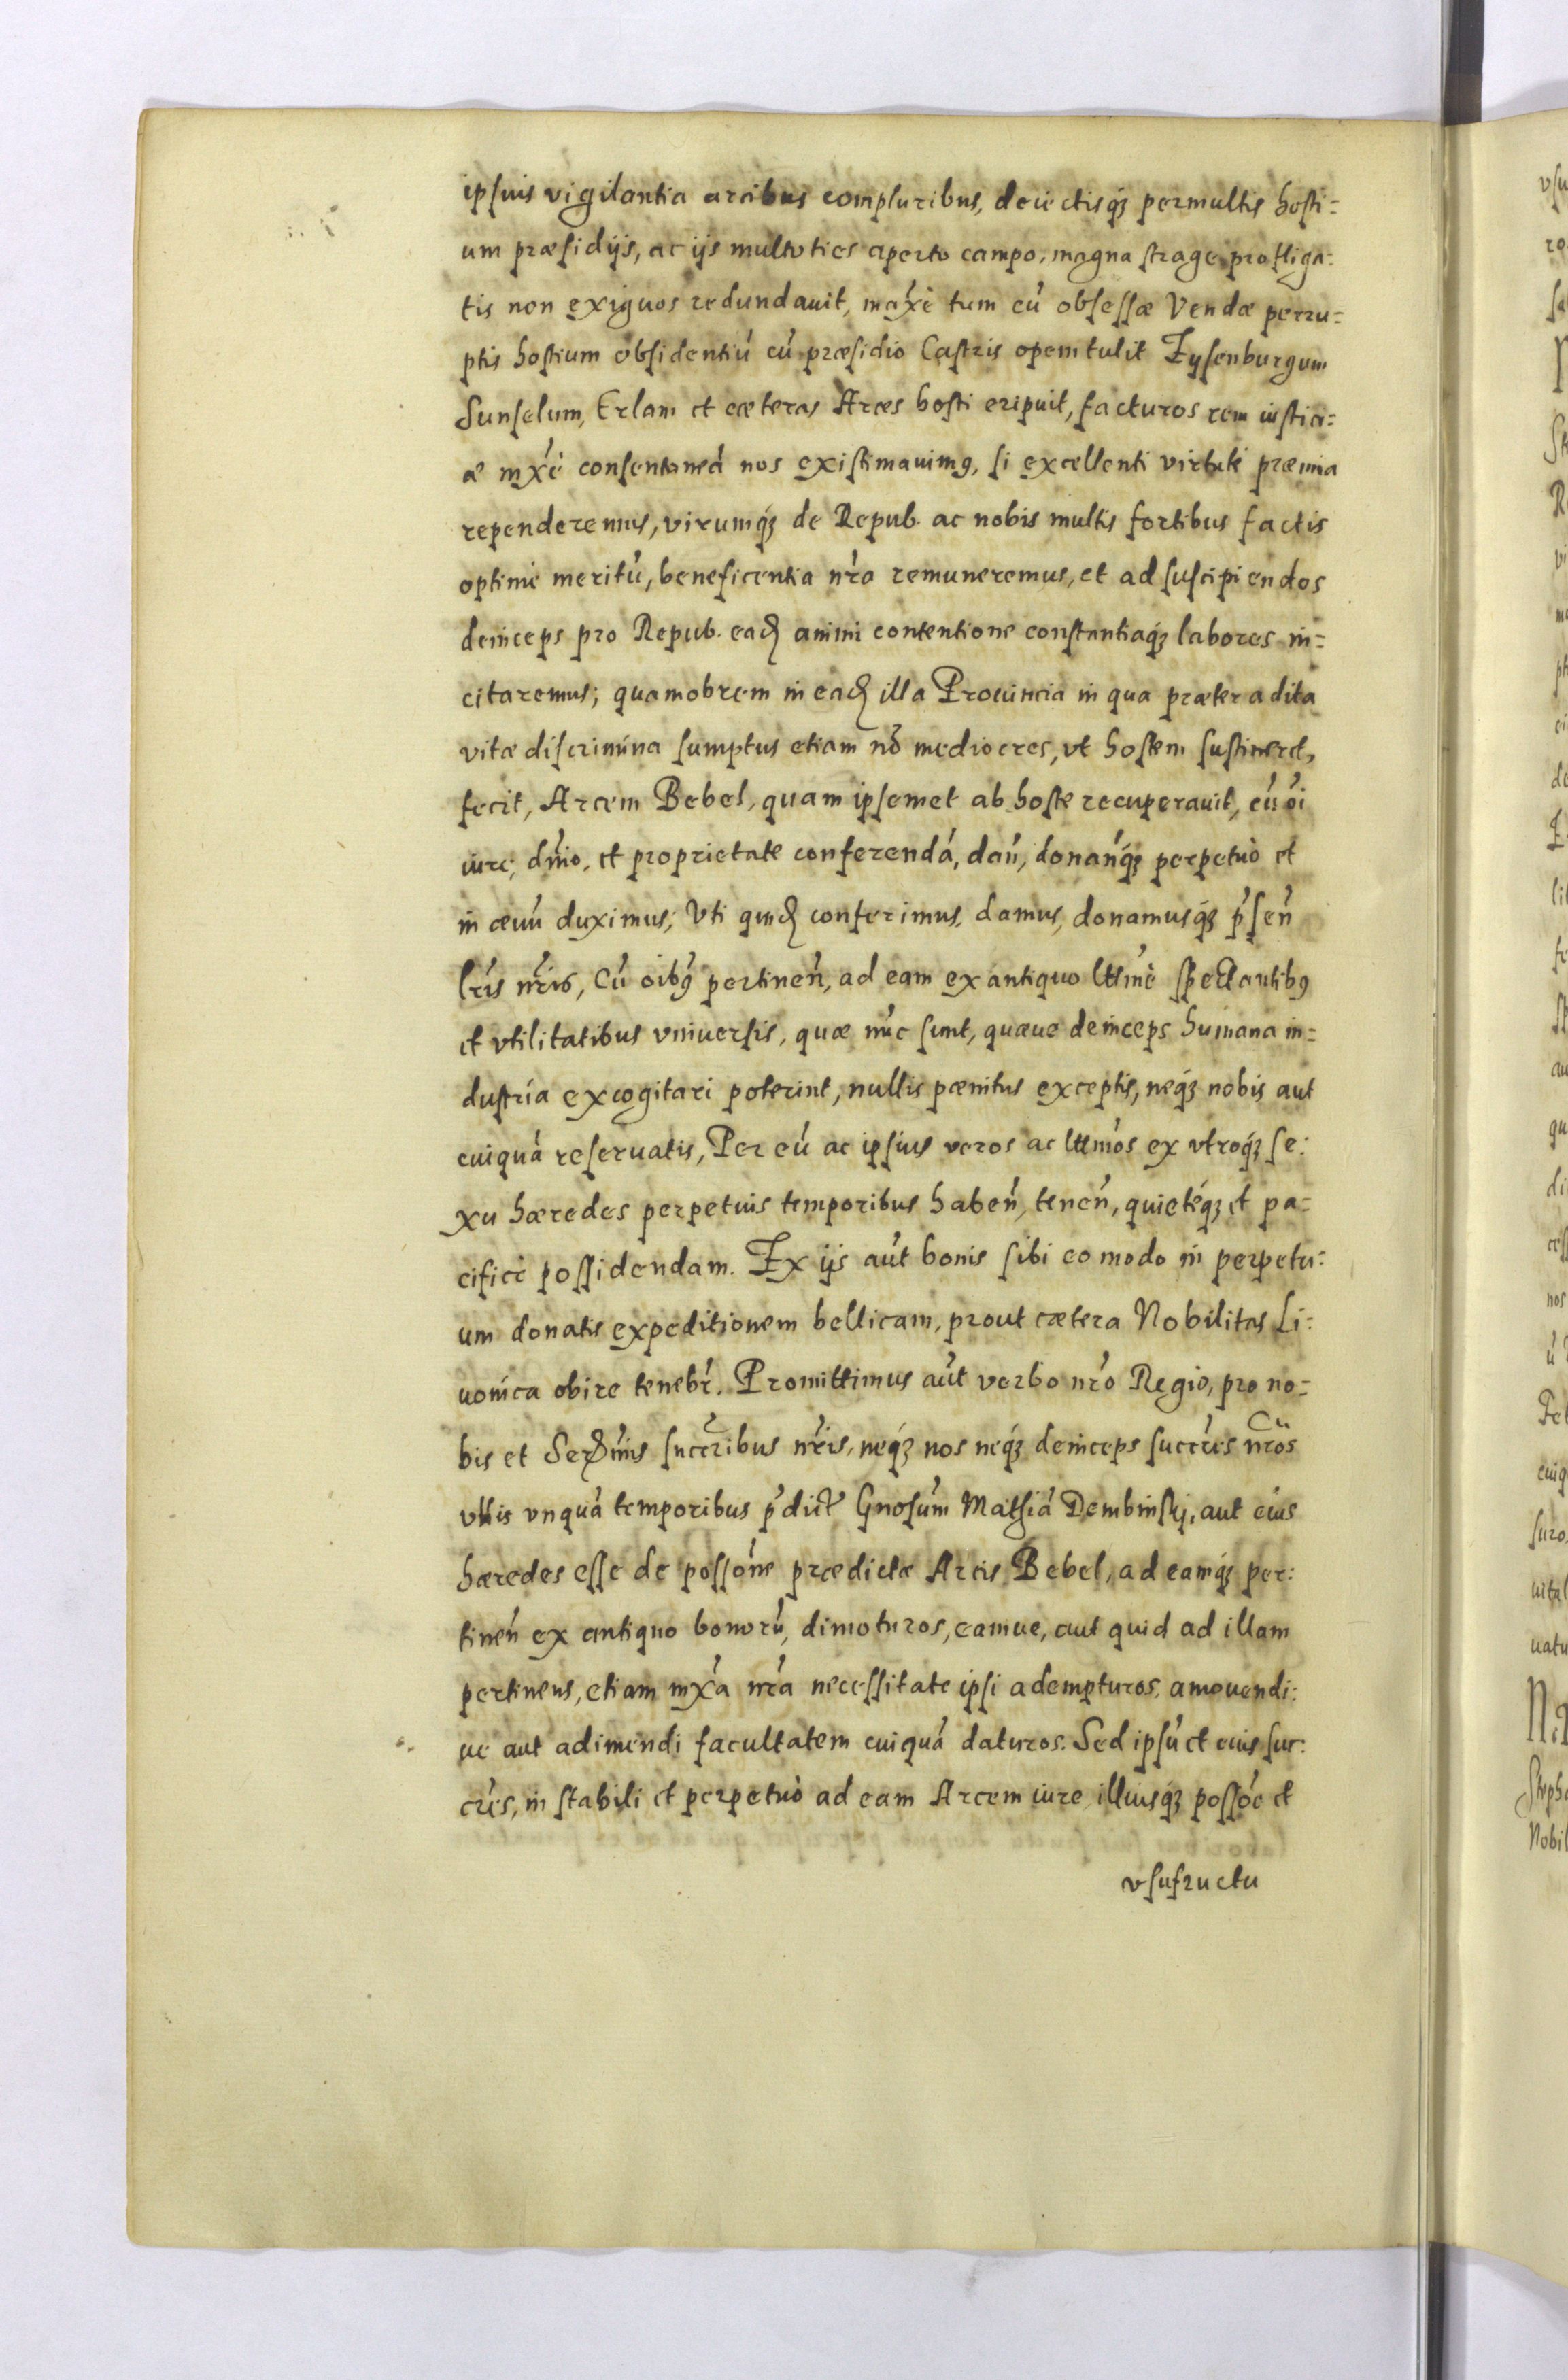 ipsius vigilantia arcibus compluribus, deiectisq́ꝫ permultis hosti=
um præsidijs, ac ijs multoties aperto campo, magna strage profliga=
tis non exiguos redundauit, maxé tum cú obsessæ Vendæ perru=
ptis hostium obsidentiú cú præsidio Castris opem tulit Eysenburgum
Sunselum, Erlam et cæteras Arces hosti eripuit, facturos rem iustici=
æ mxé consentaneá nos existimauimꝰ, si excellenti virtuti præmia
rependeremus, virumq́ꝫ de Repub. ac nobis multis fortibus factis
optimè meritú, beneficentia nŕa remuneremus, et ad suscipiendos
deinceps pro Repub. eaḋ animi contentione constantiaq́ꝫ labores in=
citaremus; quamobrem in eaḋ illa Prouincia in qua præter adita
vitæ discrimina sumptus etiam nó mediocres, vt hostem sustineret,
fecit, Arcem Bebel, quam ipsemet ab hoste recuperauit, cú oí
iure, dńio, et proprietate conferendá, dań, donańq́ꝫ perpetuò et
in æuú duximus; Vti quiḋ conferimus, damus, donamusq́ꝫ ṕseń
lŕis nŕis, Cú oibꝰ pertineń, ad eam ex antiquo lttimè spectantibꝰ
et vtilitatibus vniuersis, quæ núc sunt, quæue deinceps humana in=
dustria excogitari poterint, nullis pœnitus exceptis, neq́ꝫ nobis aut
cuiquá reseruatis, Per eú ac ipsius veros ac lttimos ex vtroq́ꝫ se=
xu hæredes perpetuis temporibus habeń, teneń, quietéq́ꝫ et pa=
cificè possidendam. Ex ijs aút bonis sibi eo modo in perpetu=
um donatis expeditionem bellicam, prout cætera Nobilitas Li=
uonica obire tenebŕ. Promittimus aút verbo nŕo Regio, pro no=
bis et Seŕmis succŕibus nŕis, neq́ꝫ nos neq́ꝫ deinceps succŕes nŕos
vllis vnquá temporibus ṕdict Gnosúm Mathiá Dembinskj, aut eius
hæredes esse de possóne prædictæ Arcis Bebel, ad eamq́ꝫ per=
tineń ex antiquo bonorú, dimoturos, eamue, aut quid ad illam
pertinens, etiam mxá nŕa necessitate ipsi adempturos, amouendi=
ue aut adimendi facultatem cuiquá daturos. Sed ipsú et eius suc=
cŕes, in stabili et perpetuò ad eam Arcem iure illiusq́ꝫ possóe et
vsufructu